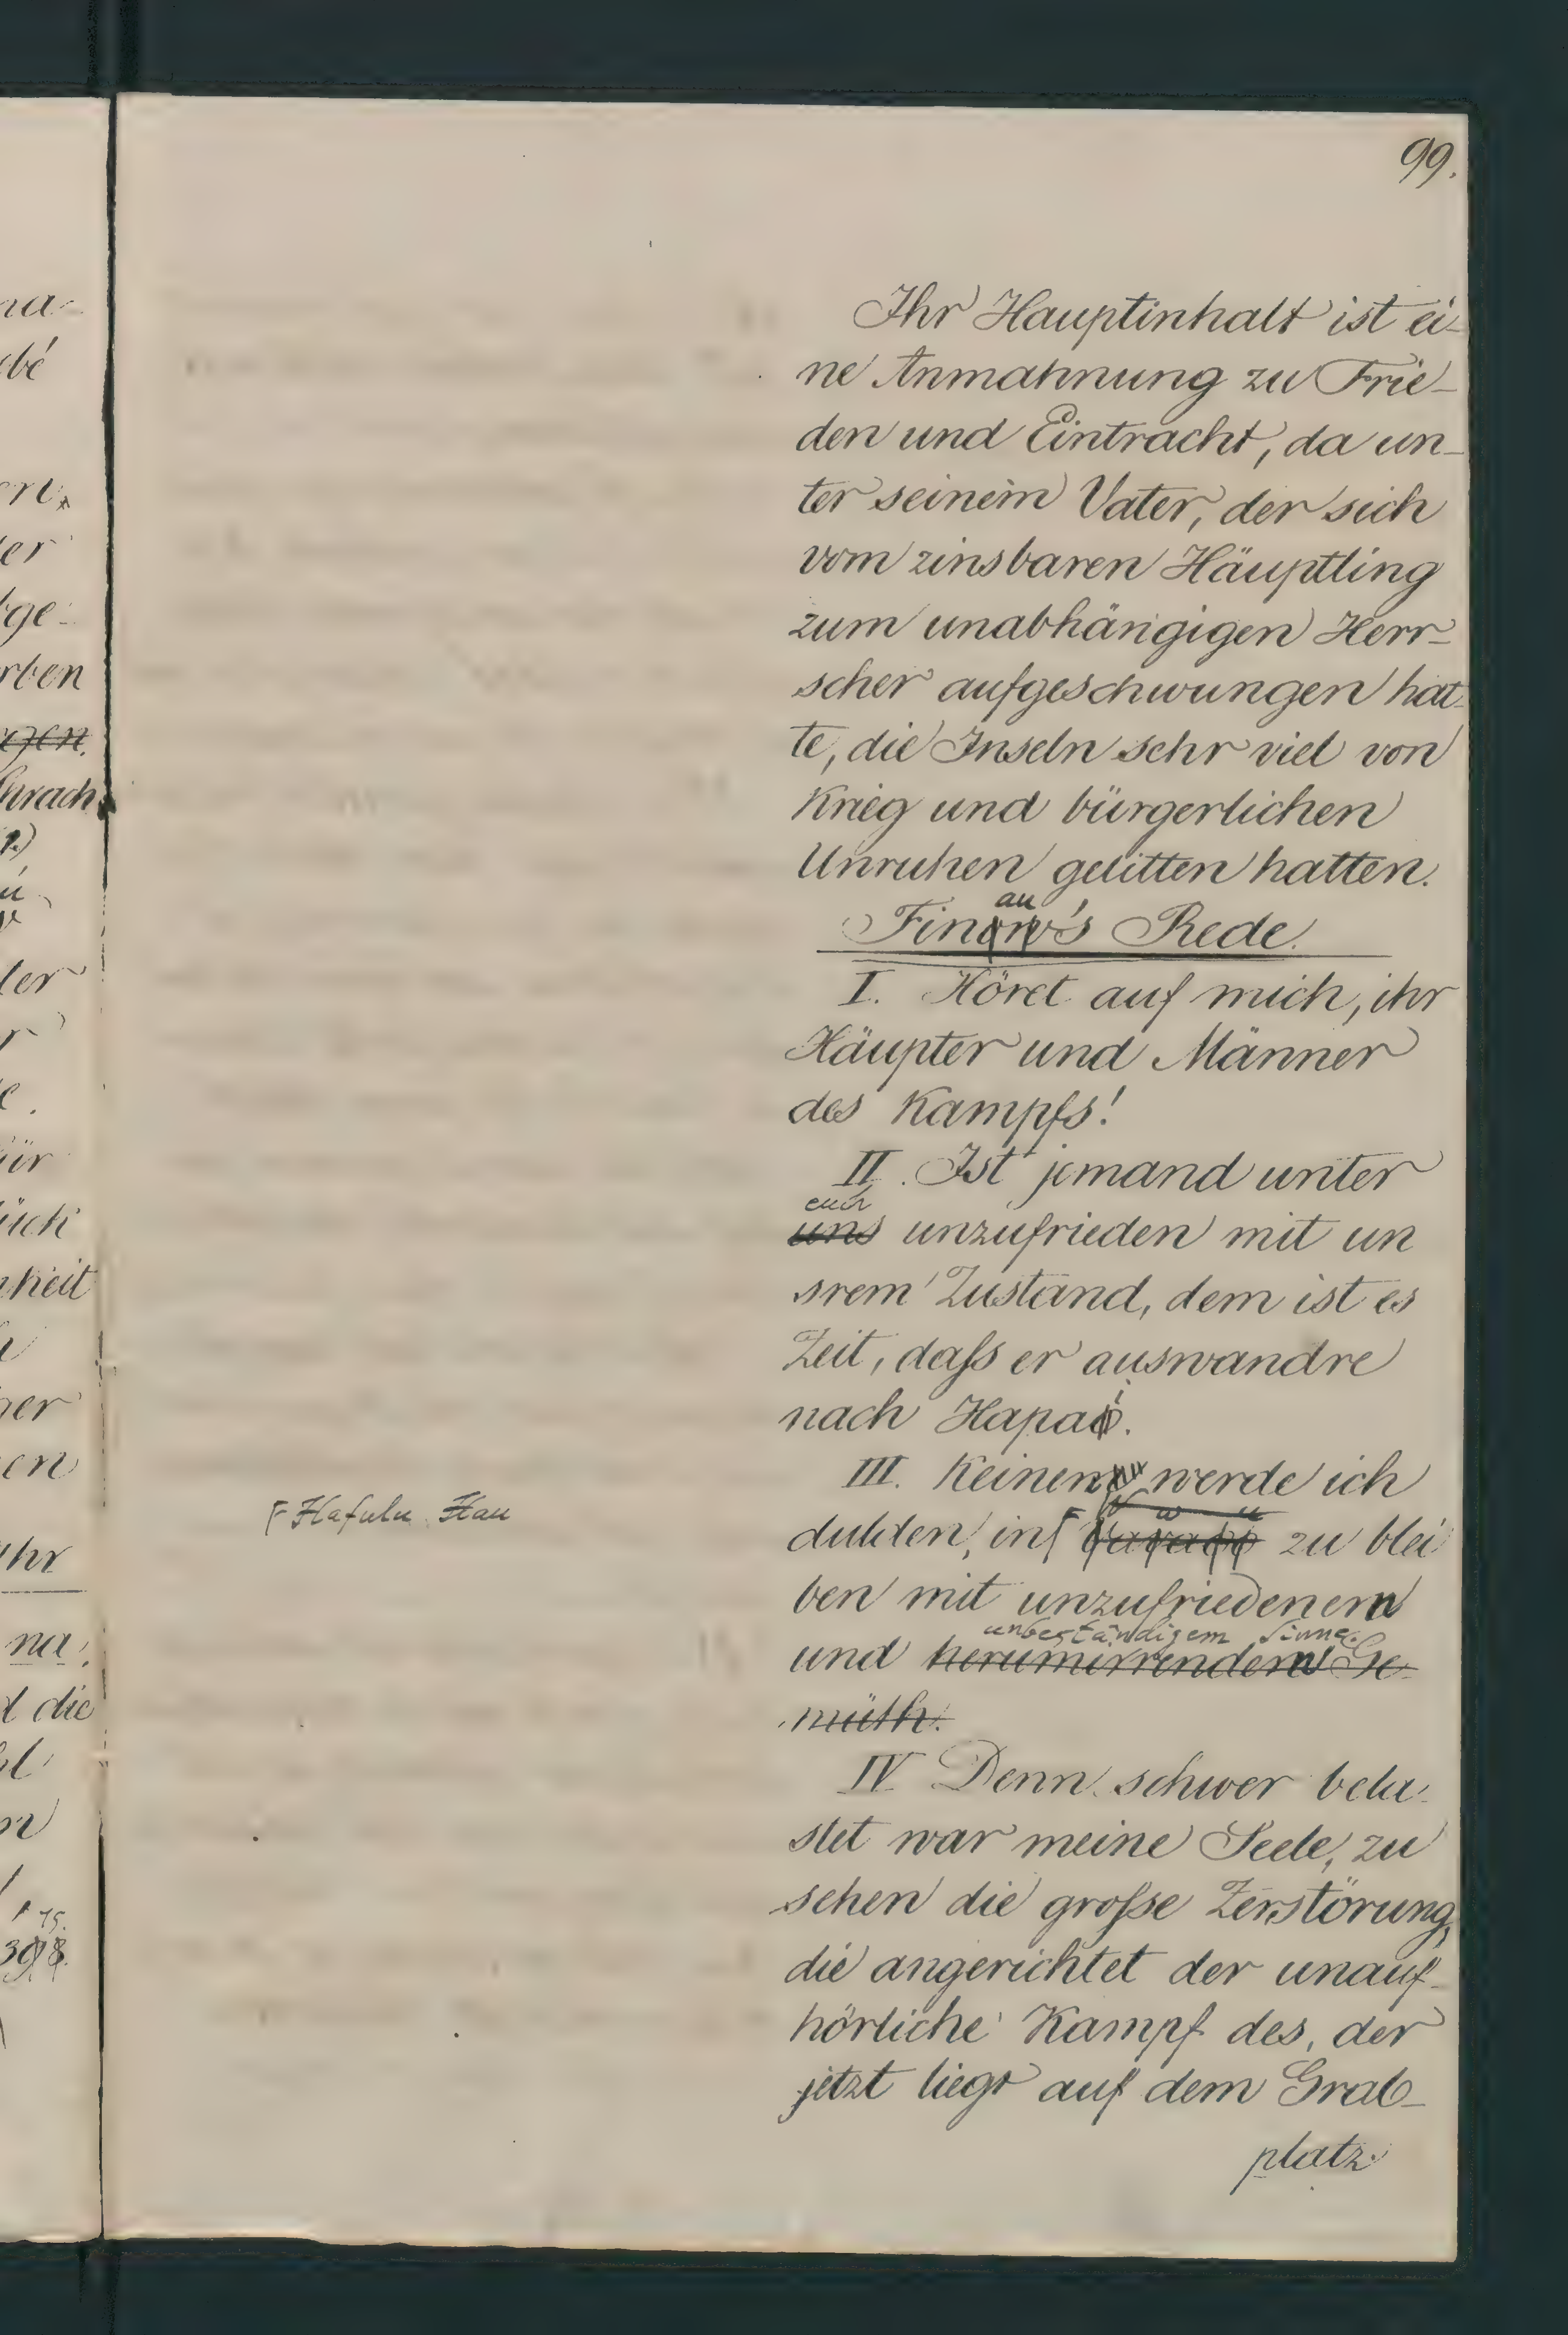 99.
Ihr Hauptinhalt ist ei-
ne Anmahnung zu Frie-
den und Eintracht, da un-
ter seinem Vater, der sich
vom zinsbaren Häuptling
zum unabhängigen Herr-
scher aufgeschwungen hat-
te, die Inseln sehr viel von
Krieg und bürgerlichen
Unruhen gelitten hatten.
au
Finow's Rede.
I. Höret auf mich, ihr
Häupter und Männer
des Kampfs!
II. Ist jemand unter
euch
uns unzufrieden mit un
srem Zustand, dem ist es
Zeit, daſs er auswandre
nach Hapai.
III. Keinen werde ich
Hafulu Hau
dulden, in zu blei
ben mit unzufriedenem
unbeständigem Sinne.
und herumirrendem Ge-
müth.
IV Denn schwer bela-
stet war meine Seele, zu
sehen die groſse Zerstörung,
die angerichtet der unauf-
hörliche Kampf des, der
jetzt liegt auf dem Grab-
platz.
na
bé
er
ge-
rben
gen.
ler
ür
ück
heit
her
en
uhr
na,
d die